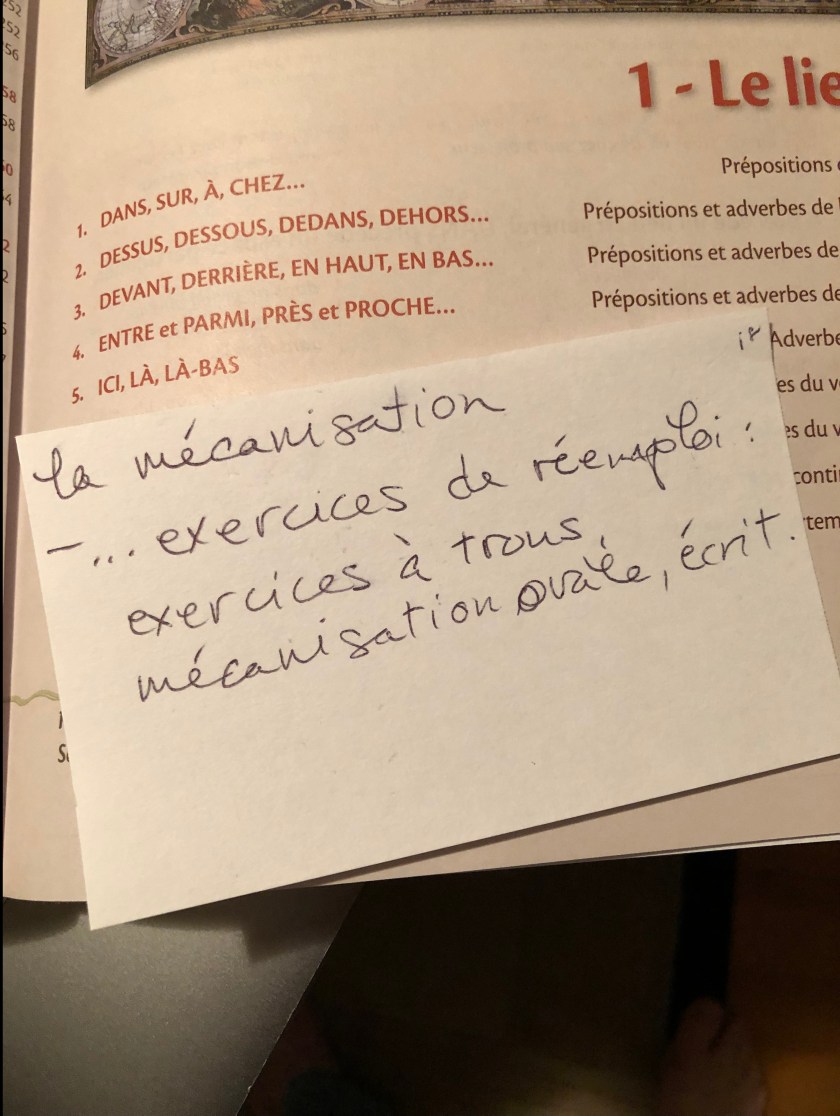 52
252
56
58
58
1 - Le lie
1. DANS, SUR, À, CHEZ...
Prépositions
2. DESSUS, DESSOUS, DEDANS, DEHORS...
Prépositions et adverbes de
3. DEVANT, DERRIÈRE, EN HAUT, EN BAS...
Prépositions et adverbes de
4. ENTRE et PARMI, PRÈS et PROCHE...
Prépositions et adverbes de
5. ICI, LÀ, LÀ-BAS
Adverbe
es du v
es du v
conti
tem
la mécanisation
-... exercices de réemploi :
exercices à trous,
mécanisation orale, écrit.